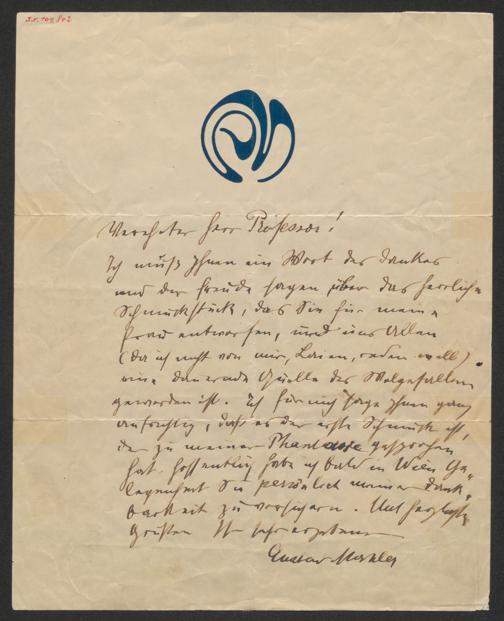 Verehrter Herr Professor!
Ich muß Ihnen ein Wort des Dankes
und der Freude sagen über das herrliche
Schmuckstück, das Sie für meine
Frau entworfen, und uns Allen
(da ich nicht von mir, Laien, reden will)
eine dauernde Quelle des Wolgefallens
geworden ist. Ich für mich sage Ihnen ganz
aufrichtig, daß es der erste Schmuck ist,
der zu meiner Phantasie gesprochen
hat. Hoffentlich habe ich bald in Wien Ge-
legenheit Sie persönlich meiner Dank-
barkeit zu versichern. Mit herzlichsten
Grüßen Ihr sehr ergebener